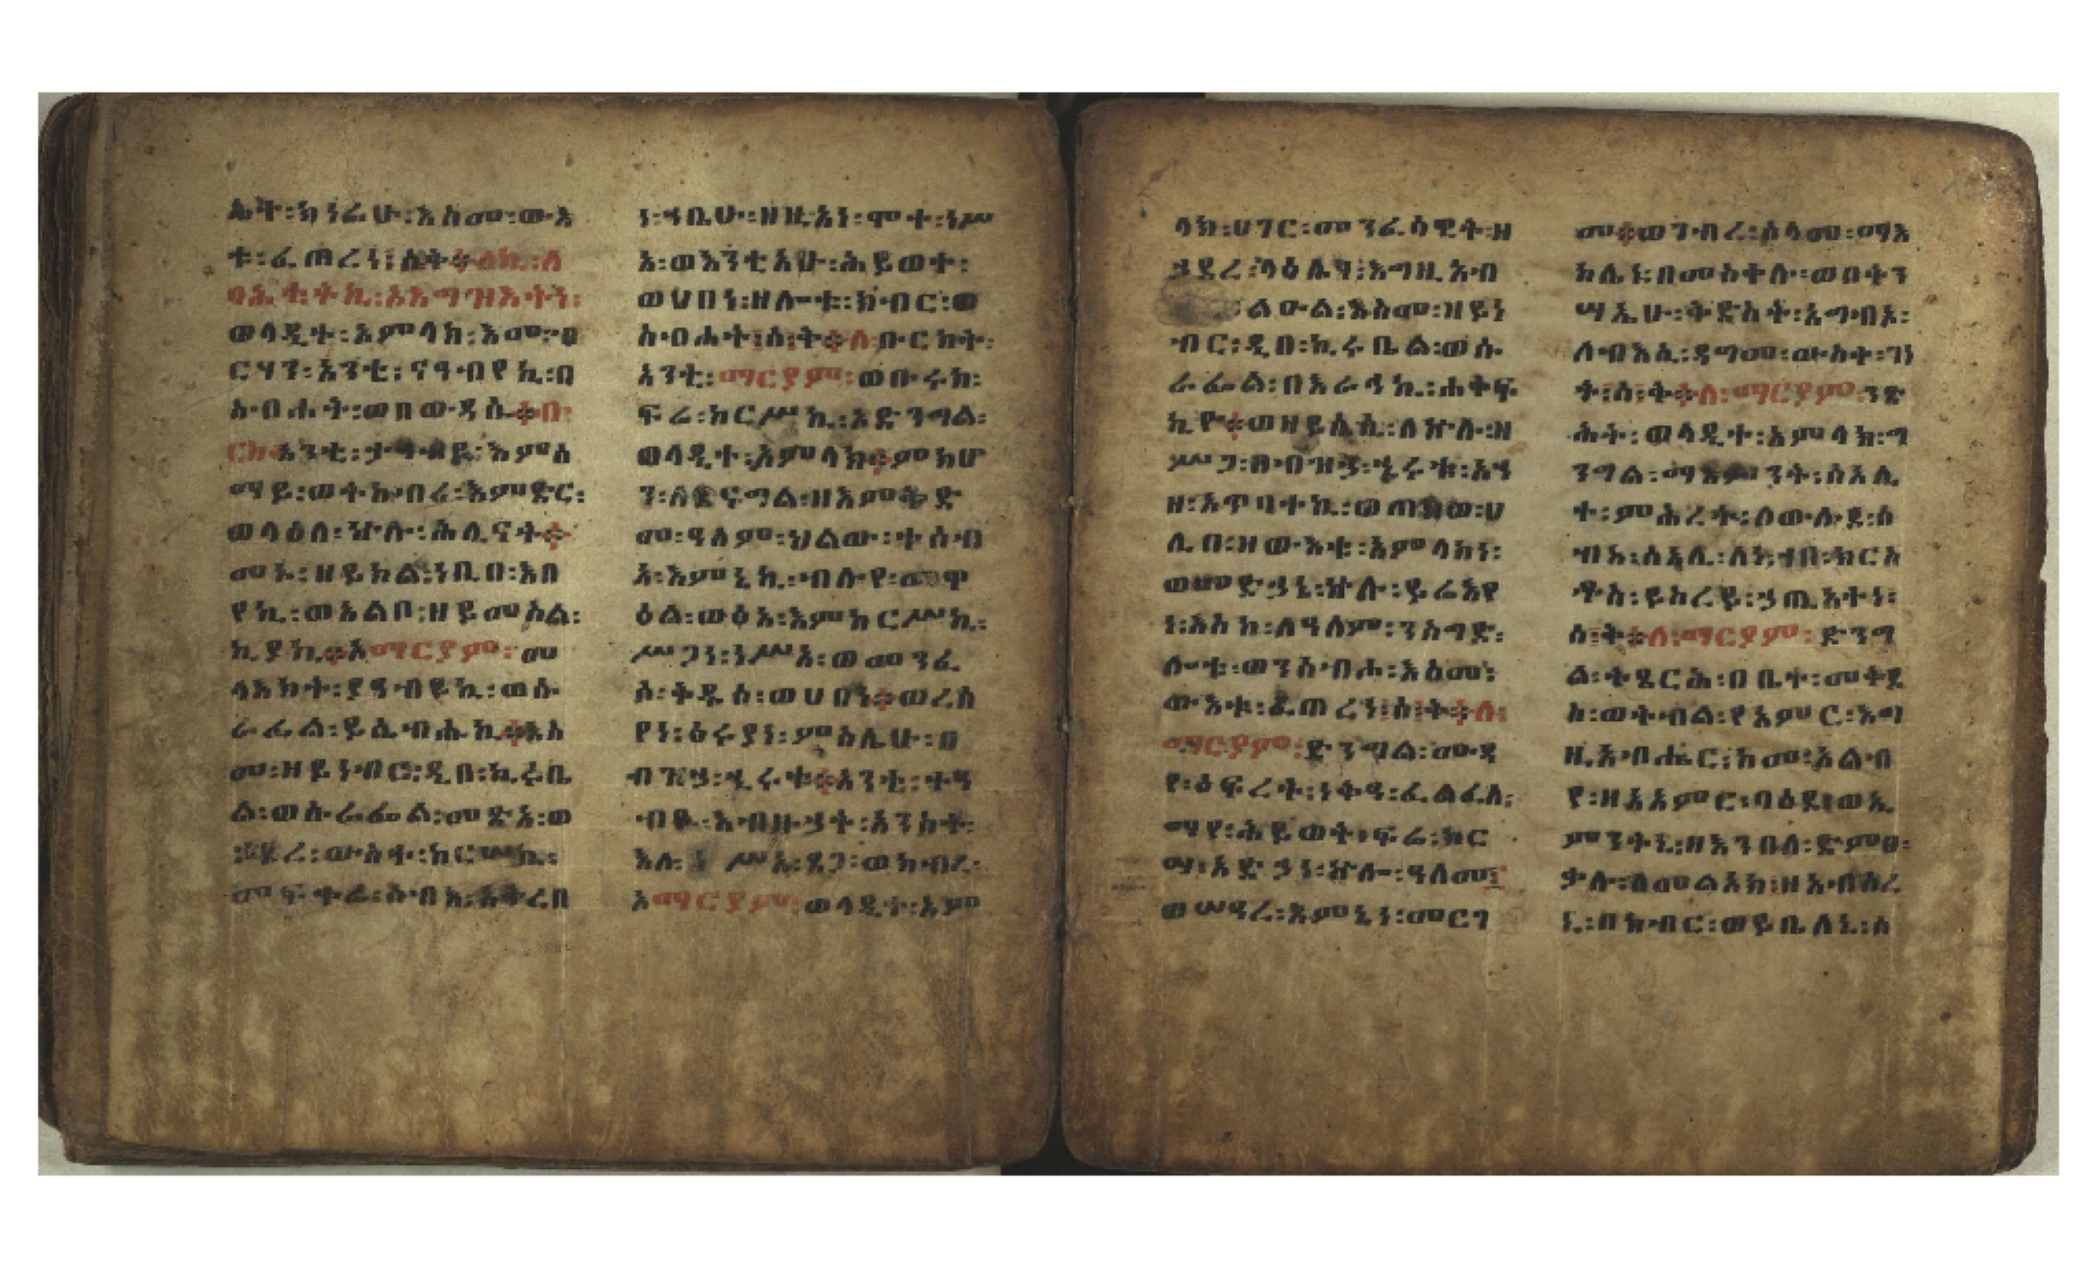 ሐት፡ክነሬሁ፡እስመ፡ውእ
ቱ፡ፈጠረነ፤ስ፡ት፨ለኪ፡ለ
ባሒቲትኪ፡እእግዝእትነ፡
ወላዲተ፡አምላክ፡እመ፡ብ
ርሃን፡አንቲ፡ናዓብየኪ፡በ
ስብሐት፡ወበውዳሴ፨ቡ
ርክት፡አንቲ፡ታዓብዪ፡እምሰ
ማይ፡ወትከብሪ፡እምድር፡
ወላዕለ፡ኵሉ፡ሕሊናት፨
መኑ፡ዘይክል፡ነቢበ፡ዕበ
የኪ፡ወአልቦ፡ዘይመስል፡
ኪያኪ፨ኦማርያም፡መ
ላእክት፡ያዓብዩኪ፡ወሱ
ራፌል፡ይሴብሑኪ፨እስ
መ፡ዘይነብር፡ዲበ፡ኪሩቤ
ል፡ወሱራፌል፡መጽአ፡ወ
ኀደረ፡ውስተ፡ከርሥኪ፡
መፍቀሬ፡ሰብእ፡አቅረበ
ነ፡ኀቤሁ፡ዘዚአነ፡ሞተ፡ነሥ
አ፡ወእንቲአሁ፡ሕይወተ፡
ወሀበነ፡ዘሎቱ፡ክብር፡ወ
ስብሐት፤ስ፡ት፨ቡርክት፡
አንቲ፡ማርያም፡ወቡሩክ፡
ፍሬ፡ከርሥኪ፡ኦድንግል፡
ወላዲተ፡አምላክ፨ምክሆ
ን፡ለደናግል፡ዘእምቅድ
መ፡ዓለም፡ህልው፡ተሰብ
አ፡እምኔኪ፡ብሉየ፡መዋ
ዕል፡ወፅአ፡እምከርሥኪ፡
ሥጋነ፡ነሥአ፡ወመንፈ
ሰ፡ቅዱሰ፡ወሀበነ፨ወረሰ
የነ፡ዕሩያነ፡ምስሌሁ፡በ
ብዝኃ፡ኂሩቱ፨አንቲ፡ተዓ
ብዪ፡እብዙኃት፡አንስት፡
እለ፡ነሥኣ፡ጸጋ፡ወክብረ፡
ኦማርያም፡ወላዲተ፡አም
ላክ፡ሀገር፡መንፈሳዊት፡ዘ
ኀደረ፡ላዕሌሃ፡እግዚአብ
ልዑል፡እስመ፡ዘይነ
ብር፡ዲበ፡ኪሩቤል፡ወሱ
ራፌል፡በእራኅኪ፡ሐቀፍ
ኪዮ፨ወዘይሴሲ፡ለኵሉ፡ዘ
ሥጋ፡በብዝኃ፡ኂሩቱ፡አኀ
ዘ፡አጥባተኪ፡ወጠበወ፡ሀ
ሊበ፡ዘውእቱ፡አምላክነ፡
ወመድኃኔ፡ኵሉ፡ይሬእየ
ነ፡እስከ፡ለዓለም፡ንስግድ፡
ሎቱ፡ወንሰብሖ፡እስመ፡
ውእቱ፡ፈጠረነ፤ስ፡ት፨ለ፡
ማርያም፡ድንግል፡ሙዳ
የ፡ዕፍረት፡ነቅዓ፡ፈልፈለ፡
ማየ፡ሕይወት፡ፍሬ፡ከር
ሣ፡አድኃነ፡ኵሎ፡ዓለመ፤
ወሠዓረ፡እምኔነ፡መርገ
መ፨ወገብረ፡ሰላመ፡ማእ
ከሌነ፡በመስቀሉ፡ወበትን
ሣኤሁ፡ቅድስት፡አግብኦ፡
ለብእሲ፡ዳግመ፡ውስተ፡ገነ
ት፤ስ፡ት፨ለ፡ማርያም፡ንጽ
ሕት፡ወላዲተ፡አምላክ፡ግ
ንግል፡ማእምንት፡ሰአሊ
ተ፡ምሕረት፡ለውሉደ፡ሰ
ብእ፡ሰአሊ፡ለነ፡ኀበ፡ክርስ
ቶስ፡ይስረይ፡ኃጢአተነ፡
ስ፡ት፨ለ፡ማርያም፡ድንግ
ል፡ትጼርሕ፡በቤተ፡መቅደ
ስ፡ወትብል፡የአምር፡እግ
ዚአብሔር፡ከመ፡አልብ
የ፡ዘአአምር፡ባዕደ፡ወኢ
ምንተኒ፡ዘእንበለ፡ድምፀ፡
ቃሉ፡ለመልአክ፡ዘአብሰረ
ኒ፡በክብር፡ወይቤለኒ፡ሰ